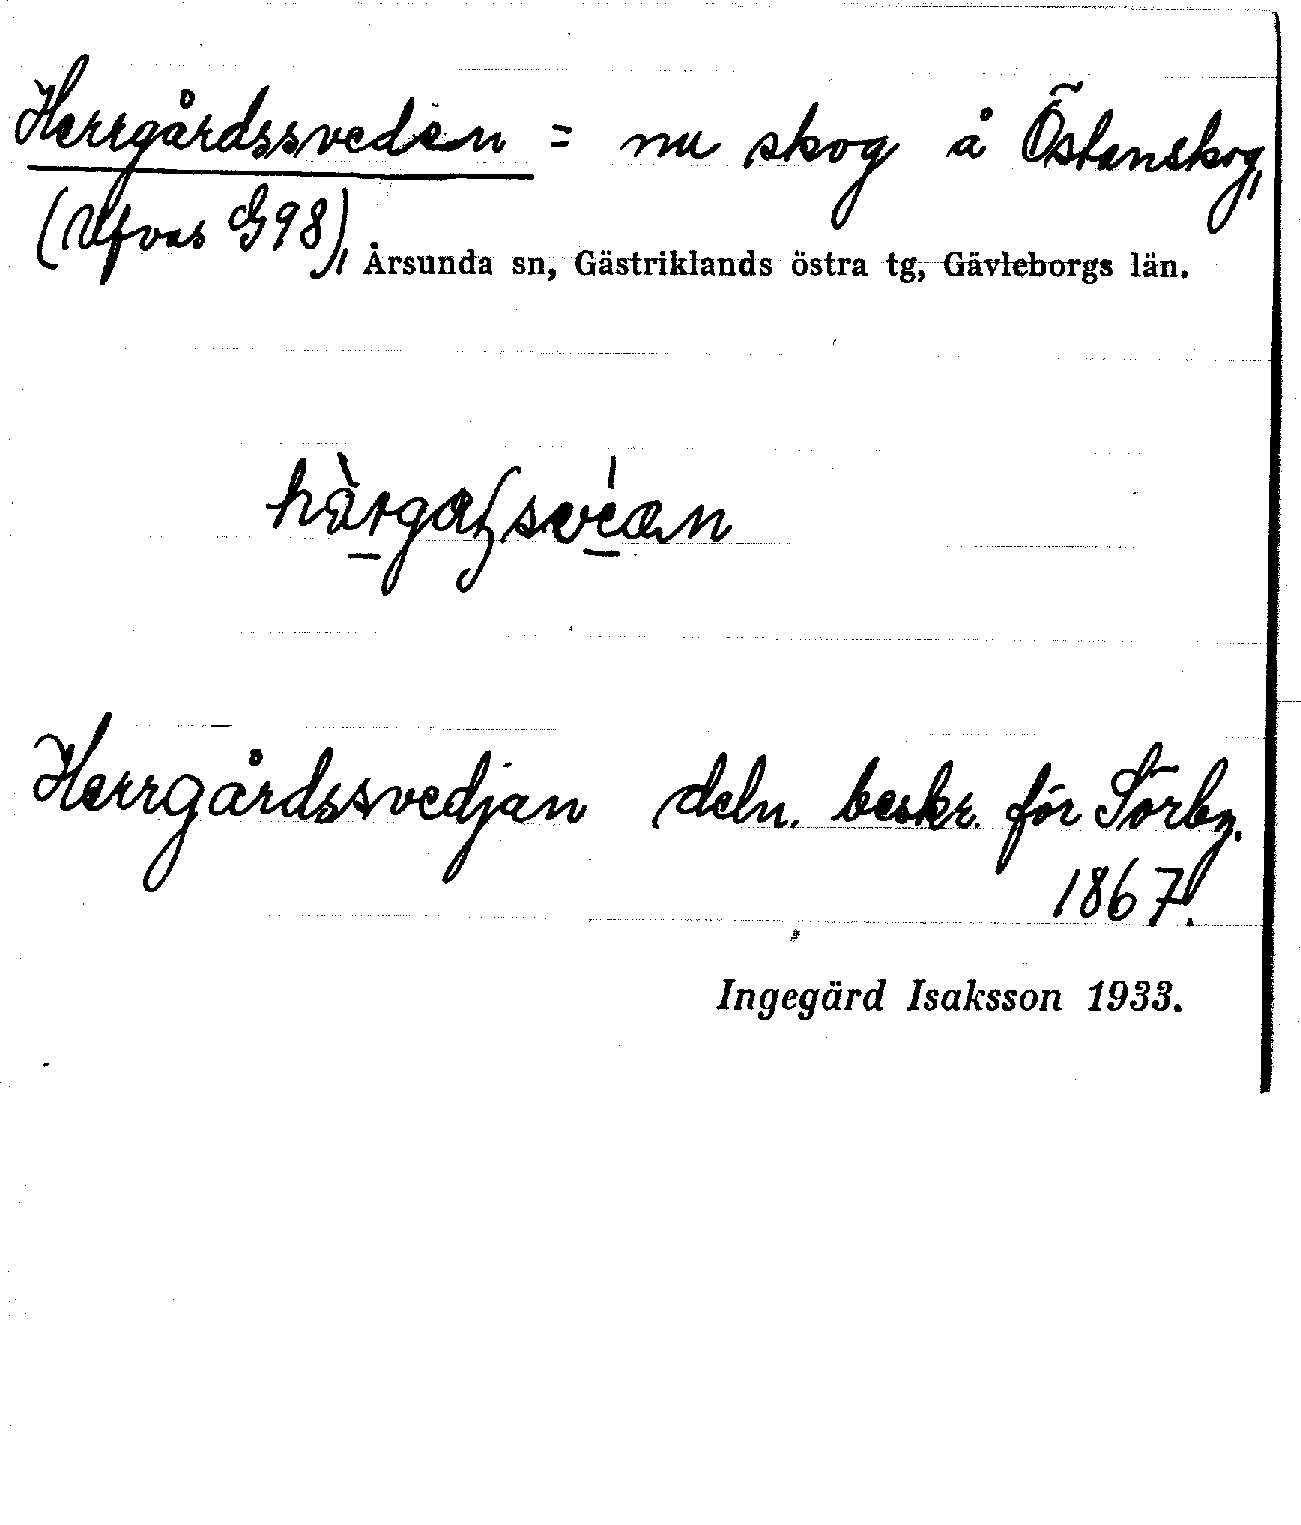 Herrgårdssveden = nu skog å Östanskog,
(Ufvas G98), Årsunda sn, Gästriklands östra tg, Gävleborgs län.
Herrgårdssvedjan deln. beskr. för Sörby.
1867.
Ingegärd Isaksson 1933.